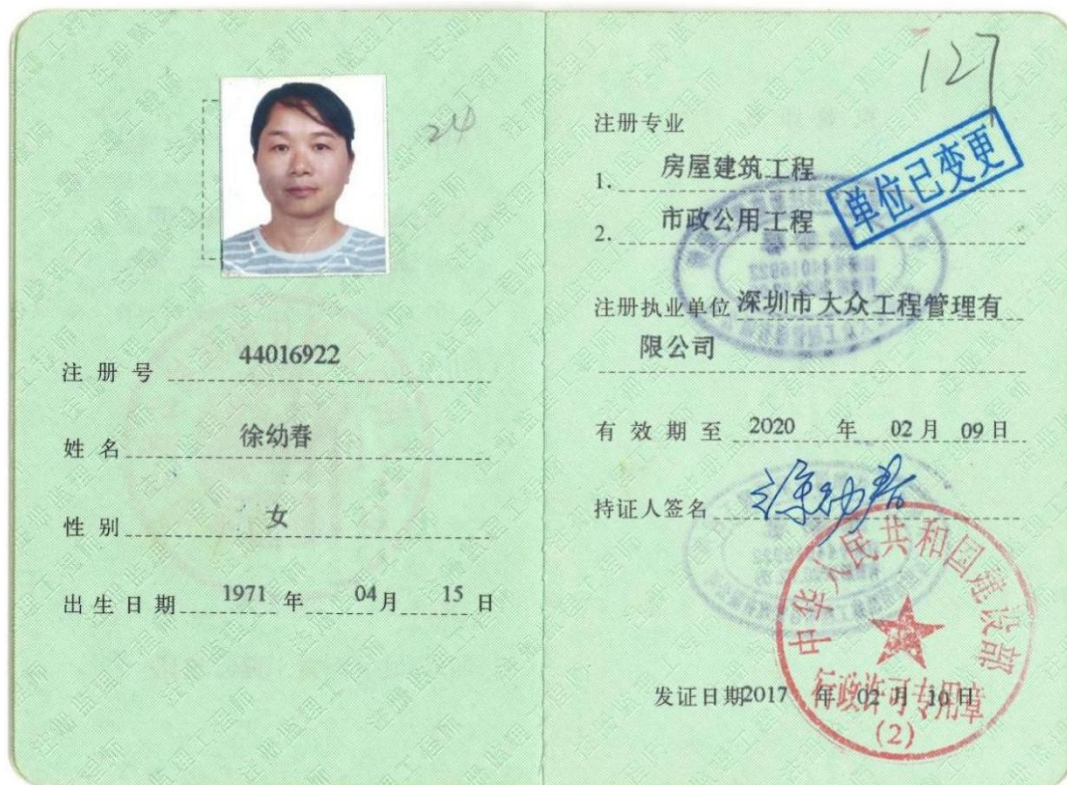 24
注册号 44016922
姓名 徐幼春
性别 女
出生日期 1971 年 04 月 15 日
127
注册专业
1. 房屋建筑工程
2. 市政公用工程
单位已变更
注册执业单位 深圳市大众工程管理有
限公司
有效期至 2020 年 02 月 09 日
持证人签名 徐幼春
中华人民共和国建设部
发证日期 2017 年 02 月 10 日
行政许可专用章
(2)